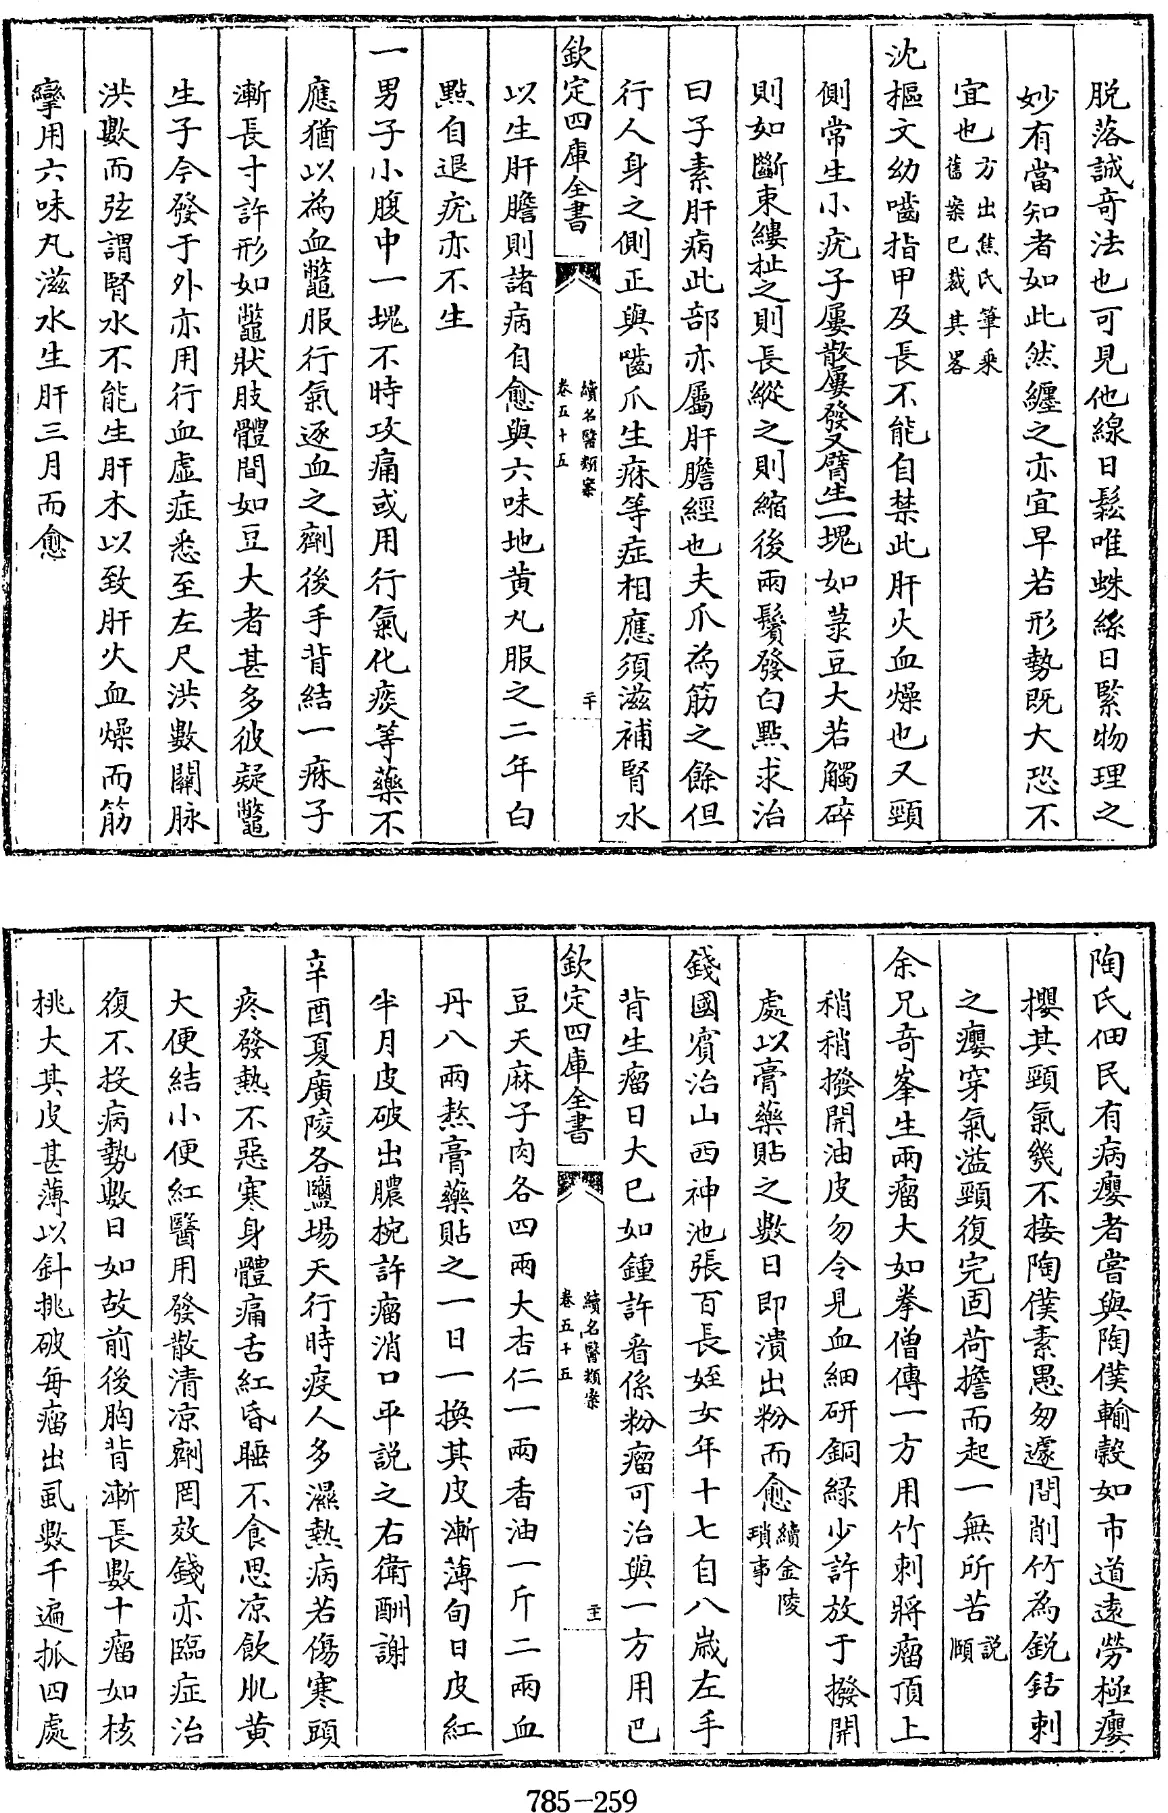 脱落誠奇法也可見他線日鬆唯蛛絲日緊物理之
妙有當知者如此然纏之亦宜早若形勢既大恐不
宜也方出焦氏筆乘舊案已裁其畧
沈樞文幼嚙指甲及長不能自禁此肝火血燥也又頸
側常生小疣子屢散屢發又臂生一塊如菉豆大若觸碎
則如斷束縷扯之則長縱之則縮後兩鬢發白點求治
曰子素肝病此部亦屬肝膽經也夫爪為筋之餘但
行人身之側正與嚙爪生痳等症相應須滋補腎水
欽定四庫全書
續名醫類案
卷五十五
二十
以生肝膽則諸病自愈與六味地黄丸服之二年白
點自退疣亦不生
一男子小腹中一塊不時攻痛或用行氣化痰等藥不
應猶以為血鼈服行氣逐血之劑後手背結一痳子
漸長寸許形如鼈狀肢體間如豆大者甚多彼疑鼈
生子今發于外亦用行血虛症悉至左尺洪數關脉
洪數而弦謂腎水不能生肝木以致肝火血燥而筋
攣用六味丸滋水生肝三月而愈
陶氏佃民有病癭者嘗與陶僕輸穀如市道遠勞極癭
攖其頸氣幾不接陶僕素愚匆遽間削竹為鋭銛刺
之癭穿氣溢頸復完固荷擔而起一無所苦説頤
余兄奇峯生兩瘤大如拳僧傳一方用竹刺將瘤頂上
稍稍撥開油皮勿令見血細研銅緑少許放于撥開
處以膏藥貼之數日即潰出粉而愈續金陵瑣事
錢國賓治山西神池張百長姪女年十七自八嵗左手
背生瘤日大已如鍾許看係粉瘤可治與一方用巴
欽定四庫全書
續名醫類案
卷五十五
二十一
豆天麻子肉各四兩大杏仁一兩香油一斤二兩血
丹八兩熬膏藥貼之一日一換其皮漸薄旬日皮紅
半月皮破出膿椀許瘤消口平説之右衛酬謝
辛酉夏廣陵各鹽場天行時疫人多濕熱病若傷寒頭
疼發熱不惡寒身體痛舌紅昏睡不食思凉飲肌黄
大便結小便紅醫用發散清凉劑罔效錢亦臨症治
復不投病勢數日如故前後胸背漸長數十瘤如核
桃大其皮甚薄以針挑破毎瘤出虱數千遍抓四處
785-259